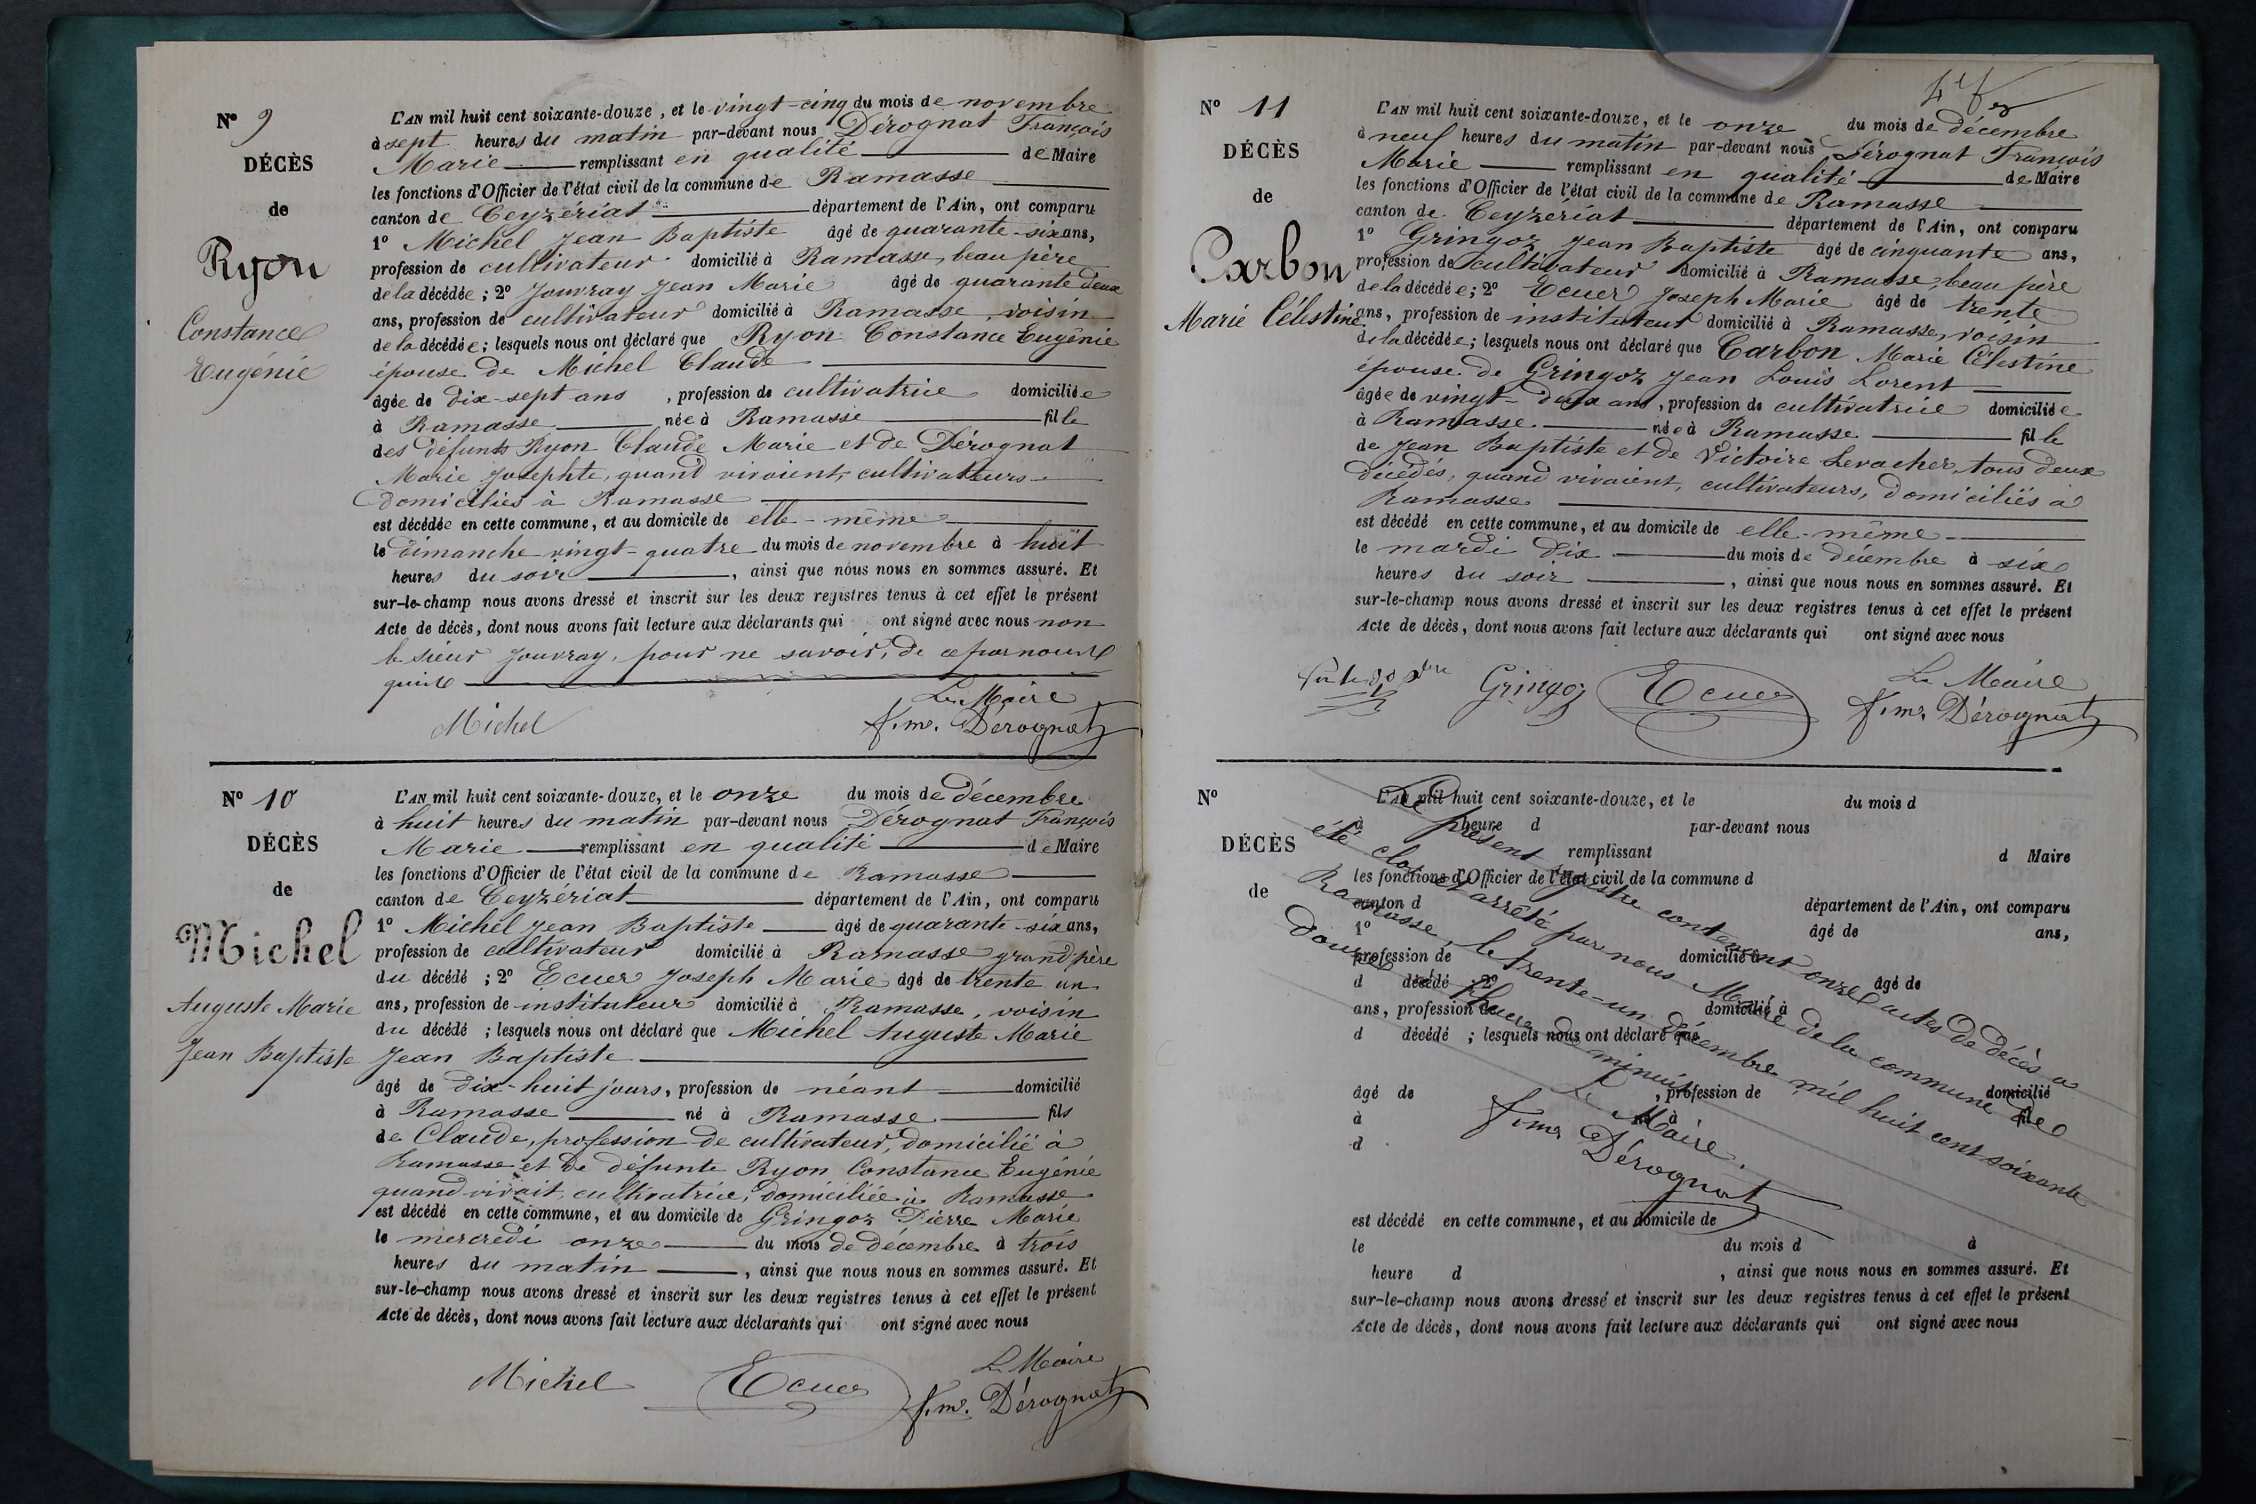 N° 9
DÉCÈS
de
Ryon
Constance
Eugénie
L'AN mil huit cent soixante-douze, et le vingt-cinq du mois de novembre
à sept heures du matin par-devant nous Dérognat François
Marie remplissant en qualité de Maire
les fonctions d'Officier de l'état civil de la commune de Ramasse
canton de Ceyzériat département de l'Ain, ont comparu
1° Michel Jean Baptiste âgé de quarante-six ans,
profession de cultivateur domicilié à Ramasse, beau père
de la décédée; 2° Jouvray Jean Marie âgé de quarante deux
ans, profession de cultivateur domicilié à Ramasse, voisin
de la décédée; lesquels nous ont déclaré que Ryon Constance Eugénie
épouse de Michel Claude
âgée de dix-sept ans, profession de cultivatrice domiciliée
à Ramasse née à Ramasse fille
des défunts Ryon Claude Marie et de Dérognat
Marie Josephte, quand vivaient, cultivateurs
domiciliés à Ramasse
est décédée en cette commune, et au domicile de elle-même
le dimanche vingt-quatre du mois de novembre à huit
heures du soir, ainsi que nous nous en sommes assuré. Et
sur-le-champ nous avons dressé et inscrit sur les deux registres tenus à cet effet le présent
Acte de décès, dont nous avons fait lecture aux déclarants qui ont signé avec nous non
le sieur Jouvray, pour ne savoir, de ce par nous
quis
Le Maire
Michel F. m. Dérognat
N° 10
DÉCÈS
de
Michel
Auguste Marie
Jean Baptiste
L'AN mil huit cent soixante-douze, et le onze du mois de décembre
à huit heures du matin par-devant nous Dérognat François
Marie remplissant en qualité de Maire
les fonctions d'Officier de l'état civil de la commune de Ramasse
canton de Ceyzériat département de l'Ain, ont comparu
1° Michel Jean Baptiste âgé de quarante-six ans,
profession de cultivateur domicilié à Ramasse grand père
du décédé; 2° Ecuer Joseph Marie âgé de trente un
ans, profession de instituteur domicilié à Ramasse, voisin
du décédé; lesquels nous ont déclaré que Michel Auguste Marie
Jean Baptiste
âgé de dix-huit jours, profession de néant domicilié
à Ramasse né à Ramasse fils
de Claude, profession de cultivateur, domicilié à
Ramasse et de défunte Ryon Constance Eugénie
quand vivait, cultivatrice, domiciliée à Ramasse
est décédé en cette commune, et au domicile de Gringoz Pierre Marie
le mercredi onze du mois de décembre à trois
heures du matin, ainsi que nous nous en sommes assuré. Et
sur-le-champ nous avons dressé et inscrit sur les deux registres tenus à cet effet le présent
Acte de décès, dont nous avons fait lecture aux déclarants qui ont signé avec nous
Le Maire
Michel Ecuer F. m. Dérognat
N° 11
DÉCÈS
de
Carbon
Marie Célestine
L'AN mil huit cent soixante-douze, et le onze du mois de décembre
à neuf heures du matin par-devant nous Dérognat François
Marie remplissant en qualité de Maire
les fonctions d'Officier de l'état civil de la commune de Ramasse
canton de Ceyzériat département de l'Ain, ont comparu
1° Gringoz Jean Baptiste âgé de cinquante ans,
profession de cultivateur domicilié à Ramasse, beau père
de la décédée; 2° Ecuer Joseph Marie âgé de trente
ans, profession de instituteur domicilié à Ramasse, voisin
de la décédée; lesquels nous ont déclaré que Carbon Marie Célestine
épouse de Gringoz Jean Louis Lorent
âgée de vingt-deux ans, profession de cultivatrice domiciliée
à Ramasse née à Ramasse fille
de Jean Baptiste et de Victoire Levacher, tous deux
décédés, quand vivaient, cultivateurs, domiciliés à
Ramasse
est décédé en cette commune, et au domicile de elle-même
le mardi dix du mois de décembre à six
heures du soir, ainsi que nous nous en sommes assuré. Et
sur-le-champ nous avons dressé et inscrit sur les deux registres tenus à cet effet le présent
Acte de décès, dont nous avons fait lecture aux déclarants qui ont signé avec nous
Le Maire
Gringoz Ecuer F. m. Dérognat
N°
DÉCÈS
de
L'AN mil huit cent soixante-douze, et le du mois d
à heure d par-devant nous
remplissant d Maire
les fonctions d'Officier de l'état civil de la commune d
canton d département de l'Ain, ont comparu
1° âgé de ans,
profession de domicilié à
d décédé 2° âgé de
ans, profession de domicilié à
d décédé; lesquels nous ont déclaré que
âgé de, profession de domicilié
à né à fil
d
est décédé en cette commune, et au domicile de
le du mois d à
heure d, ainsi que nous nous en sommes assuré. Et
sur-le-champ nous avons dressé et inscrit sur les deux registres tenus à cet effet le présent
Acte de décès, dont nous avons fait lecture aux déclarants qui ont signé avec nous
Le présent registre contenant onze actes de décès a
été clos et arrêté par nous Maire de la commune de
Ramasse, le trente-un décembre mil huit cent soixante
douze à l'heure de minuit
Le Maire.
F. m. Dérognat